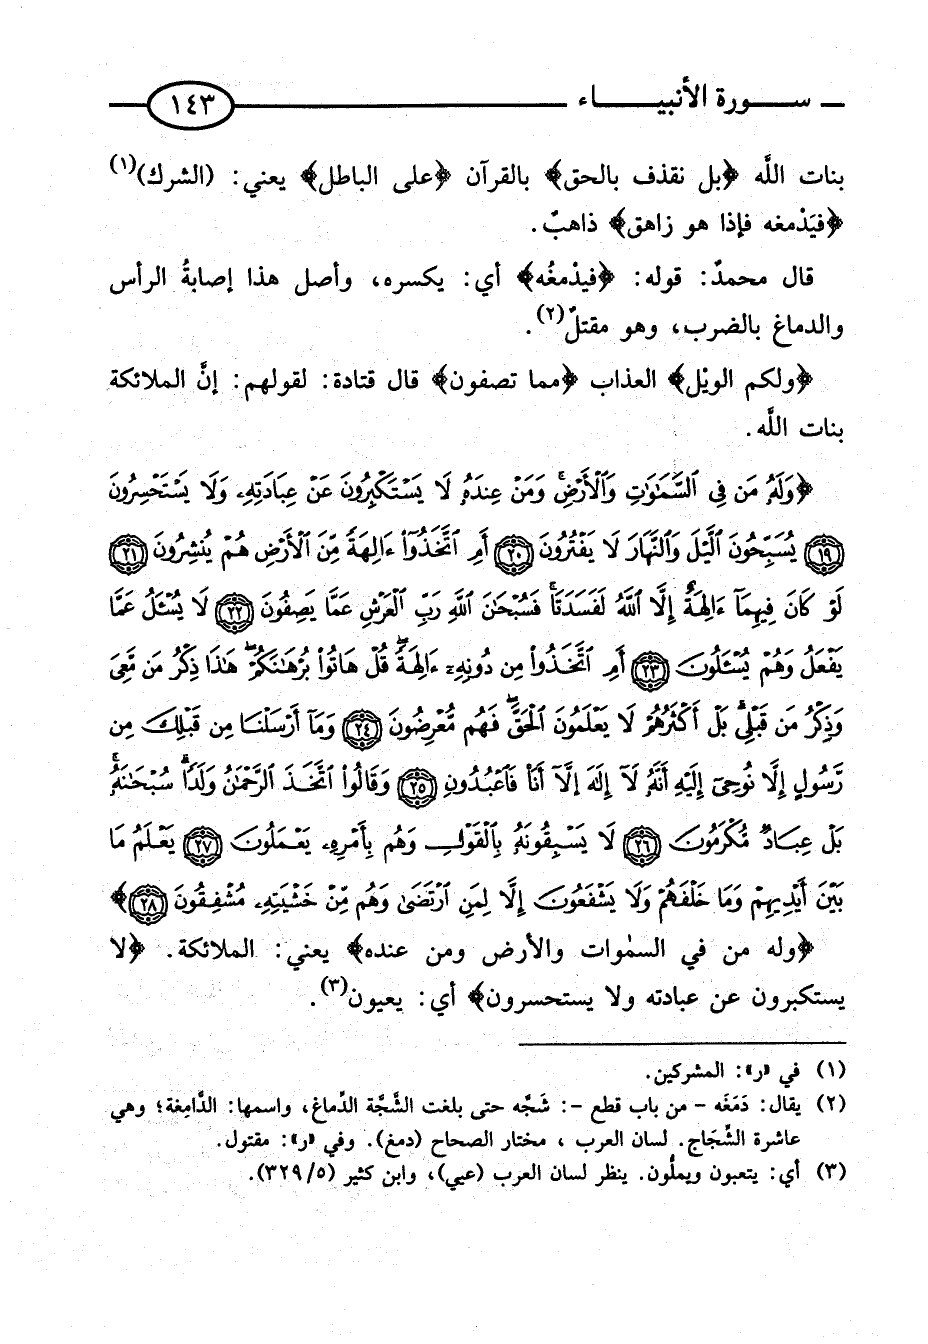 سورة الأنبياء ١٤٣
بنات اللَّه ﴿بل نقذف بالحق﴾ بالقرآن ﴿على الباطل﴾ يعني: (الشرك)(١)
﴿فيَدْمغه فإذا هو زاهق﴾ ذاهبٌ.
قال محمدٌ: قوله: ﴿فيدْمغُه﴾ أي: يكسره، وأصل هذا إصابةُ الرأس
والدماغ بالضرب، وهو مقتلٌ(٢).
﴿ولكم الويْل﴾ العذاب ﴿مما تصفون﴾ قال قتادة: لقولهم: إنَّ الملائكة
بنات اللَّه.
﴿وَلَهُ مَن فِي ٱلسَّمَٰوَٰتِ وَٱلْأَرْضِ ۚ وَمَنْ عِندَهُ لَا يَسْتَكْبِرُونَ عَنْ عِبَادَتِهِۦ وَلَا يَسْتَحْسِرُونَ
١٩ يُسَبِّحُونَ ٱلَّيْلَ وَٱلنَّهَارَ لَا يَفْتُرُونَ ٢٠ أَمِ ٱتَّخَذُوٓا۟ ءَالِهَةً مِّنَ ٱلْأَرْضِ هُمْ يُنشِرُونَ ٢١
لَوْ كَانَ فِيهِمَآ ءَالِهَةٌ إِلَّا ٱللَّهُ لَفَسَدَتَا ۚ فَسُبْحَٰنَ ٱللَّهِ رَبِّ ٱلْعَرْشِ عَمَّا يَصِفُونَ ٢٢ لَا يُسْـَٔلُ عَمَّا
يَفْعَلُ وَهُمْ يُسْـَٔلُونَ ٢٣ أَمِ ٱتَّخَذُوا۟ مِن دُونِهِۦٓ ءَالِهَةً ۖ قُلْ هَاتُوا۟ بُرْهَٰنَكُمْ ۖ هَٰذَا ذِكْرُ مَن مَّعِىَ
وَذِكْرُ مَن قَبْلِى ۗ بَلْ أَكْثَرُهُمْ لَا يَعْلَمُونَ ٱلْحَقَّ ۖ فَهُم مُّعْرِضُونَ ٢٤ وَمَآ أَرْسَلْنَا مِن قَبْلِكَ مِن
رَّسُولٍ إِلَّا نُوحِىٓ إِلَيْهِ أَنَّهُ لَآ إِلَٰهَ إِلَّآ أَنَا۠ فَٱعْبُدُونِ ٢٥ وَقَالُوا۟ ٱتَّخَذَ ٱلرَّحْمَٰنُ وَلَدًا ۗ سُبْحَٰنَهُ ۚ
بَلْ عِبَادٌ مُّكْرَمُونَ ٢٦ لَا يَسْبِقُونَهُ بِٱلْقَوْلِ وَهُم بِأَمْرِهِۦ يَعْمَلُونَ ٢٧ يَعْلَمُ مَا
بَيْنَ أَيْدِيهِمْ وَمَا خَلْفَهُمْ وَلَا يَشْفَعُونَ إِلَّا لِمَنِ ٱرْتَضَىٰ وَهُم مِّنْ خَشْيَتِهِۦ مُشْفِقُونَ ٢٨﴾
﴿وله من في السمٰوات والأرض ومن عنده﴾ يعني: الملائكة. ﴿لا
يستكبرون عن عبادته ولا يستحسرون﴾ أي: يعيون(٣).
(١) في «ر»: المشركين.
(٢) يقال: دَمَغَه - من باب قطع -: شَجَّه حتى بلغت الشَّجَّة الدِّماغ، واسمها: الدَّامِغة؛ وهي
عاشرة الشِّجَاج. لسان العرب ، مختار الصحاح (دمغ). وفي «ر»: مقتول.
(٣) أي: يتعبون ويملُّون. ينظر لسان العرب (عيي)، وابن كثير (٥/ ٣٢٩).